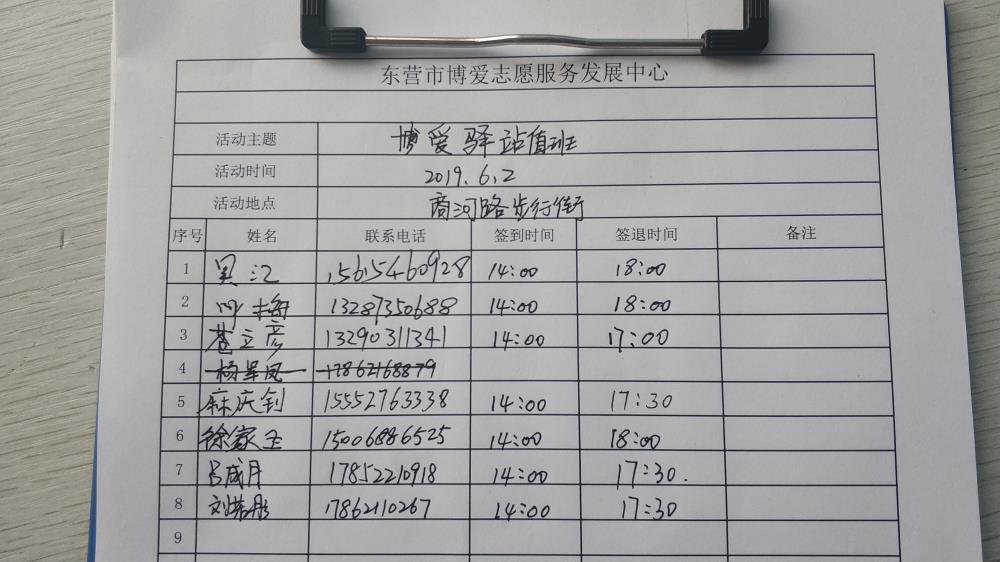 东营市博爱志愿服务发展中心
活动主题 博爱驿站值班
活动时间 2019.6.2
活动地点 商河路步行街
序号 姓名 联系电话 签到时间 签退时间 备注
1 吴江 15615460928 14:00 18:00
2 13287350688 14:00 18:00
3 苍立彦 13290311341 14:00 17:00
4 杨军凤 17862168879
5 麻庆钊 15552763338 14:00 17:30
6 徐家玉 15006886525 14:00 18:00
7 吕成月 17852210918 14:00 17:30.
8 17862110267 14:00 17:30
9